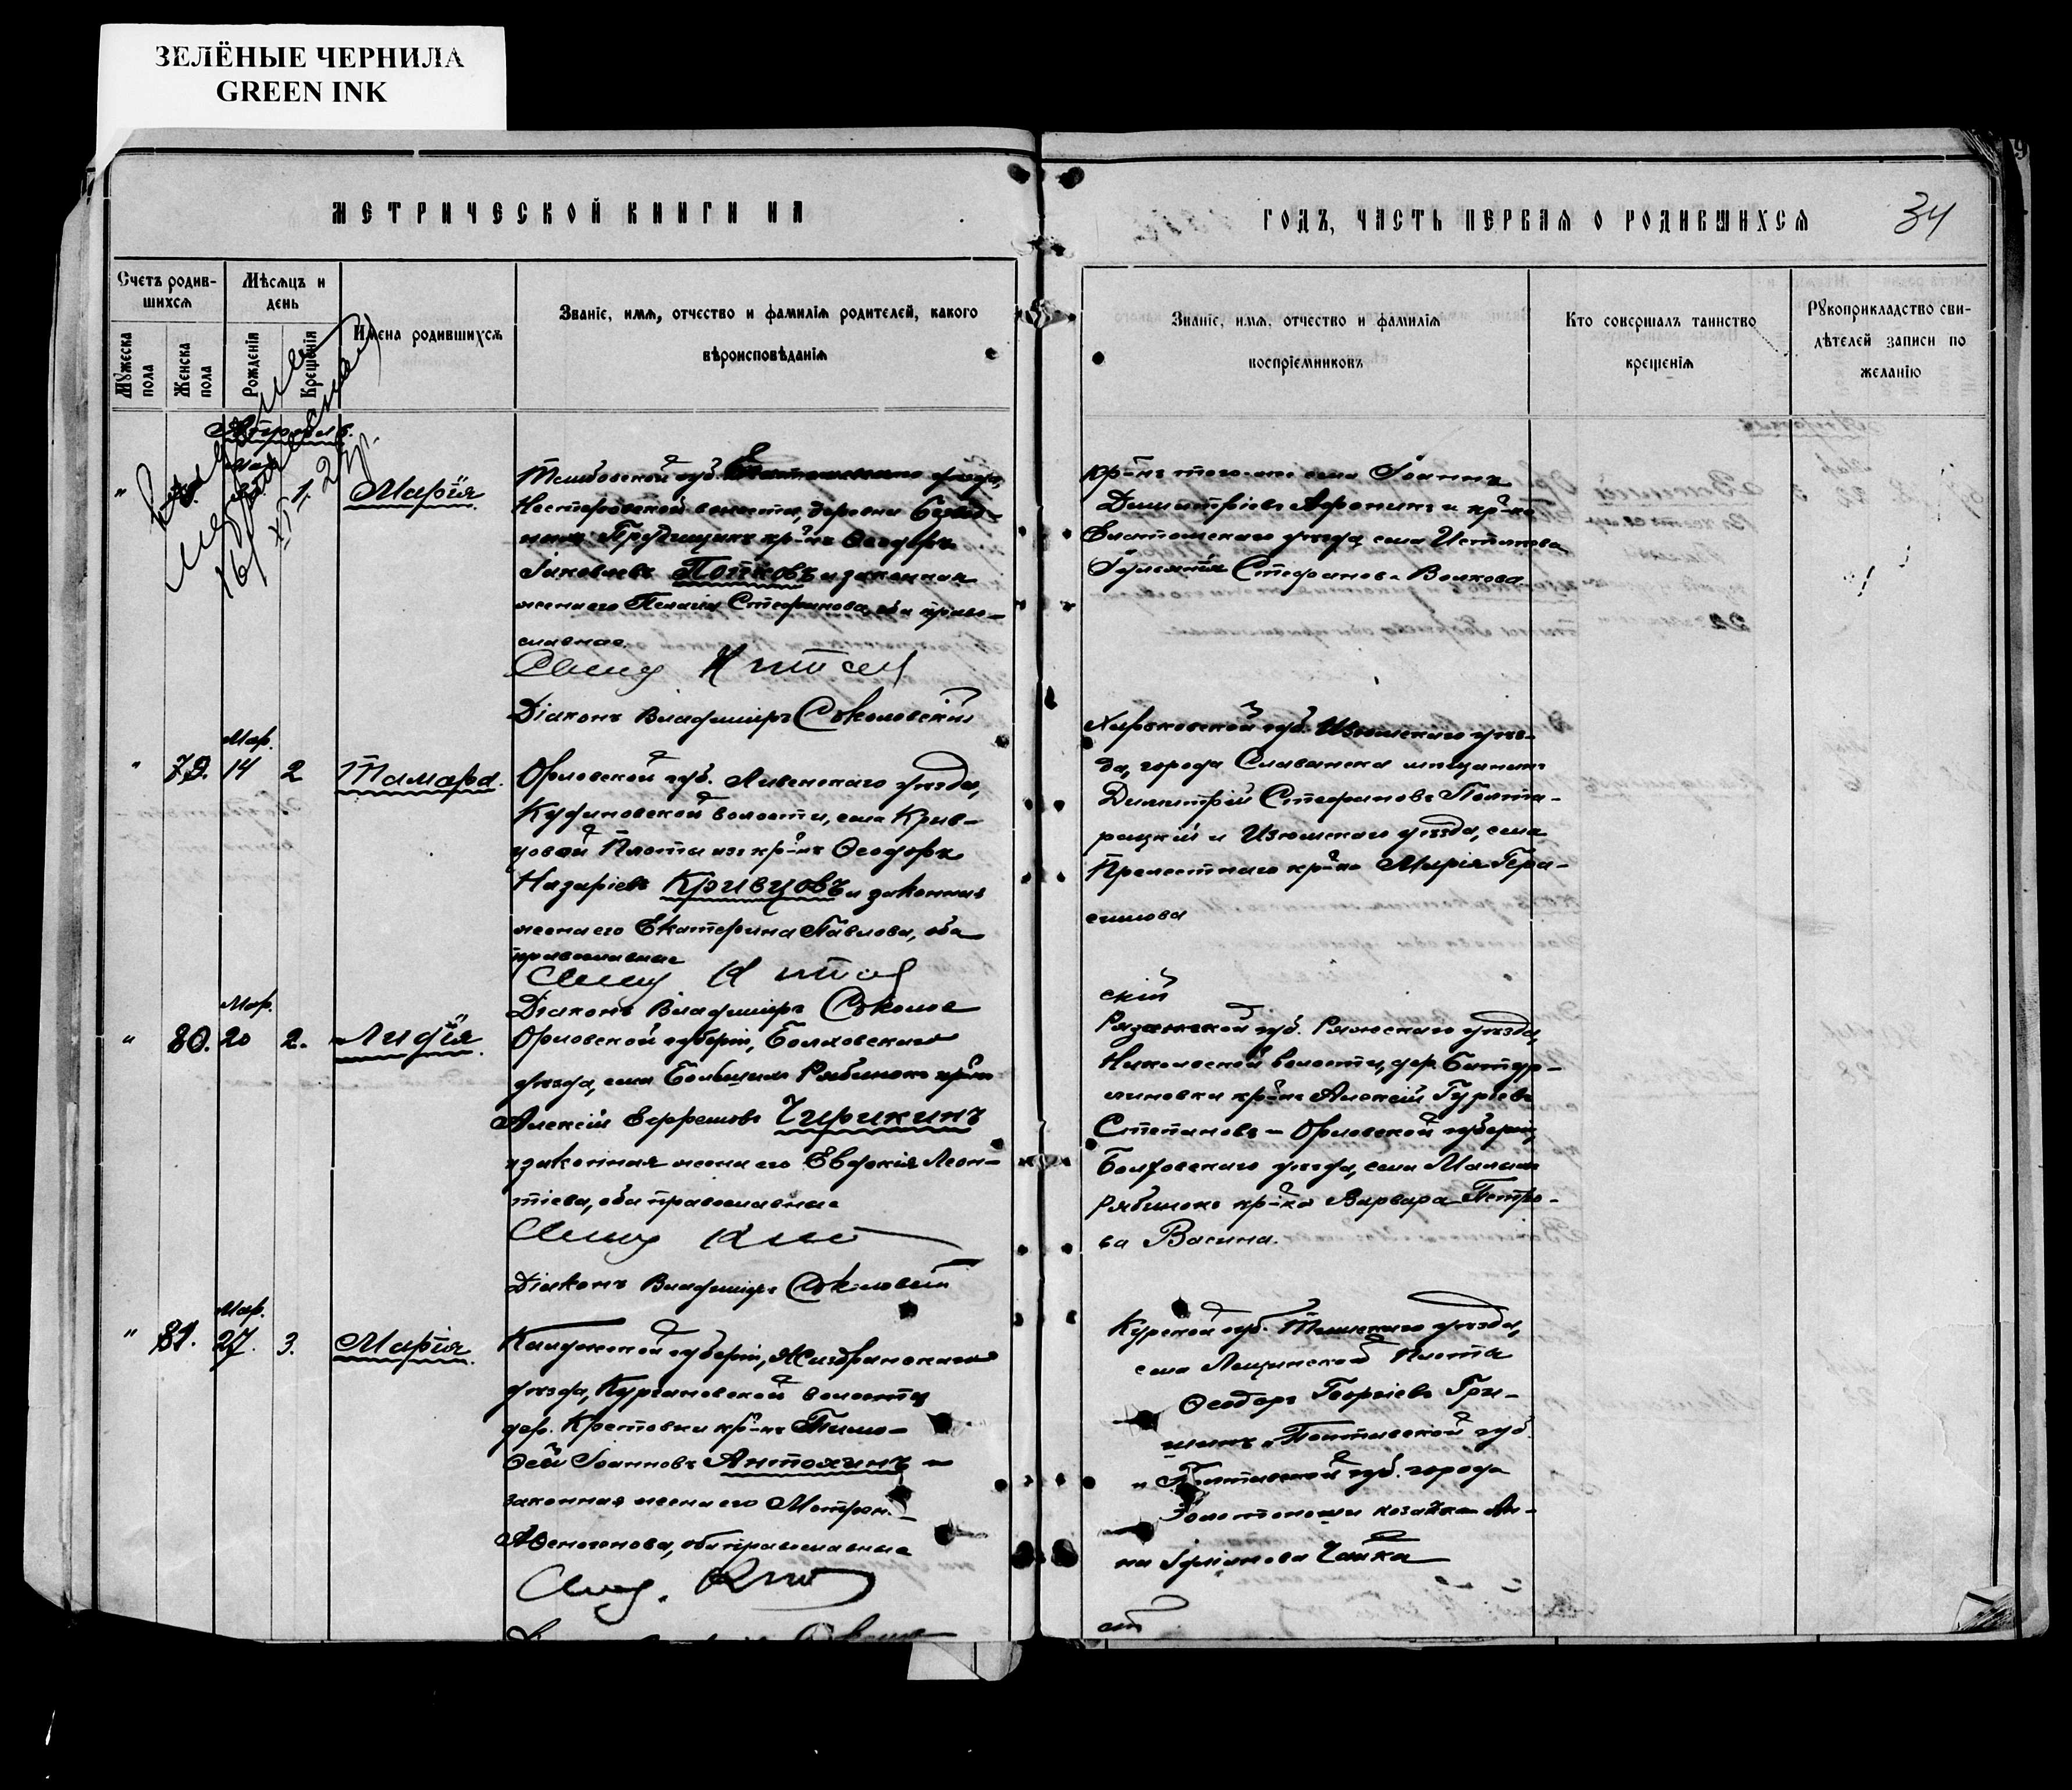 ЗЕЛЁНЫЕ ЧЕРНИЛА
GREEN INK
МЕТРИЧЕСКОЙ КНИГИ НА
ГОДЪ, ЧАСТЬ ПЕРВАЯ О РОДИВШИХСЯ
34
Счетъ родив-
шихся
Мужеска пола
Женска пола
Мѣсяцъ и
день
Рожденія
Крещенія
Имена родившихся
Званіе, имя, отчество и фамилія родителей, какого
вѣроисповѣданія
Званіе, имя, отчество и фамилія
воспріемниковъ
Кто совершалъ таинство
крещенія
Рукоприкладство сви-
дѣтелей записи по
желанію
Апрѣль.
" 1. Марія
Тамбовской губ. уѣзда,
Нестеровской волости, деревни
кр-нъ Ѳеодоръ
Іаковлевъ Попковъ и законная
жена его Пелагія Стефанова, оба право-
славные.
Діаконъ Владиміръ Соколовскій
кр-нъ того-же села Іоаннъ
Димитріевъ Афонинъ и кр-ка
Елатомскаго уѣзда, села Истлеева
Іуліанія Стефанова Волкова
Мар.
" 79. 14 2 Тамара.
Орловской губ. Ливенскаго уѣзда,
волости, села Крив-
цовой Плоты изъ кр-нъ Ѳеодоръ
Назаріевъ Кривцовъ и законная
жена его Екатерина Павлова, оба
православные
Діаконъ Владиміръ Соколов
Харьковской губ. Изюмскаго уѣз-
да, города Славянска мѣщанинъ
Димитрій Стефановъ Полта-
рацкій и Изюмскаго уѣзда, села
Прелестнаго кр-ка Марія Гера-
симова
скій
Мар.
" 80. 20 2. Лидія.
Орловской губерніи, Болховскаго
уѣзда, села Большихъ Рябинокъ кр-нъ
Алексій Ефремовъ Чирикинъ
и законная жена его Евдокія Леон-
тіева, оба православные
Діаконъ Владиміръ Соколовскій
Рязанской губ. Ряжскаго уѣзда,
Никольской волости, дер.
кр-нъ Алексій Гуріевъ
Степановъ и Орловской губерніи,
Болховскаго уѣзда, села Малыхъ
Рябинокъ кр-ка Варвара Петро-
ва Васина.
Мар.
" 81. 27. 3. Марія.
Калужской губерніи, Жиздринскаго
уѣзда, волости
дер. Кретовки кр-нъ Тимо-
ѳей Іоанновъ Антохинъ и
законная жена его Матрона
Аѳиногенова, оба православные
Курской губ. Тимскаго уѣзда,
села Лещинской Плоты
Ѳеодоръ Георгіевъ Гри-
шинъ и Полтавской губ.
и Полтавской губ. города
Золотоноши козачка Ан-
на Іуліанова Чайка